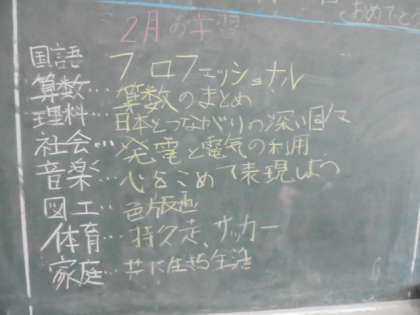 おめでと
2月の学習
国語 プロフェッショナル
算数…算数のまとめ
理科…日本とつながりの深い国々
社会…発電と電気の利用
音楽…心をこめて表現しよう
図工…色版画
体育…持久走、サッカー
家庭…共に生きる生活